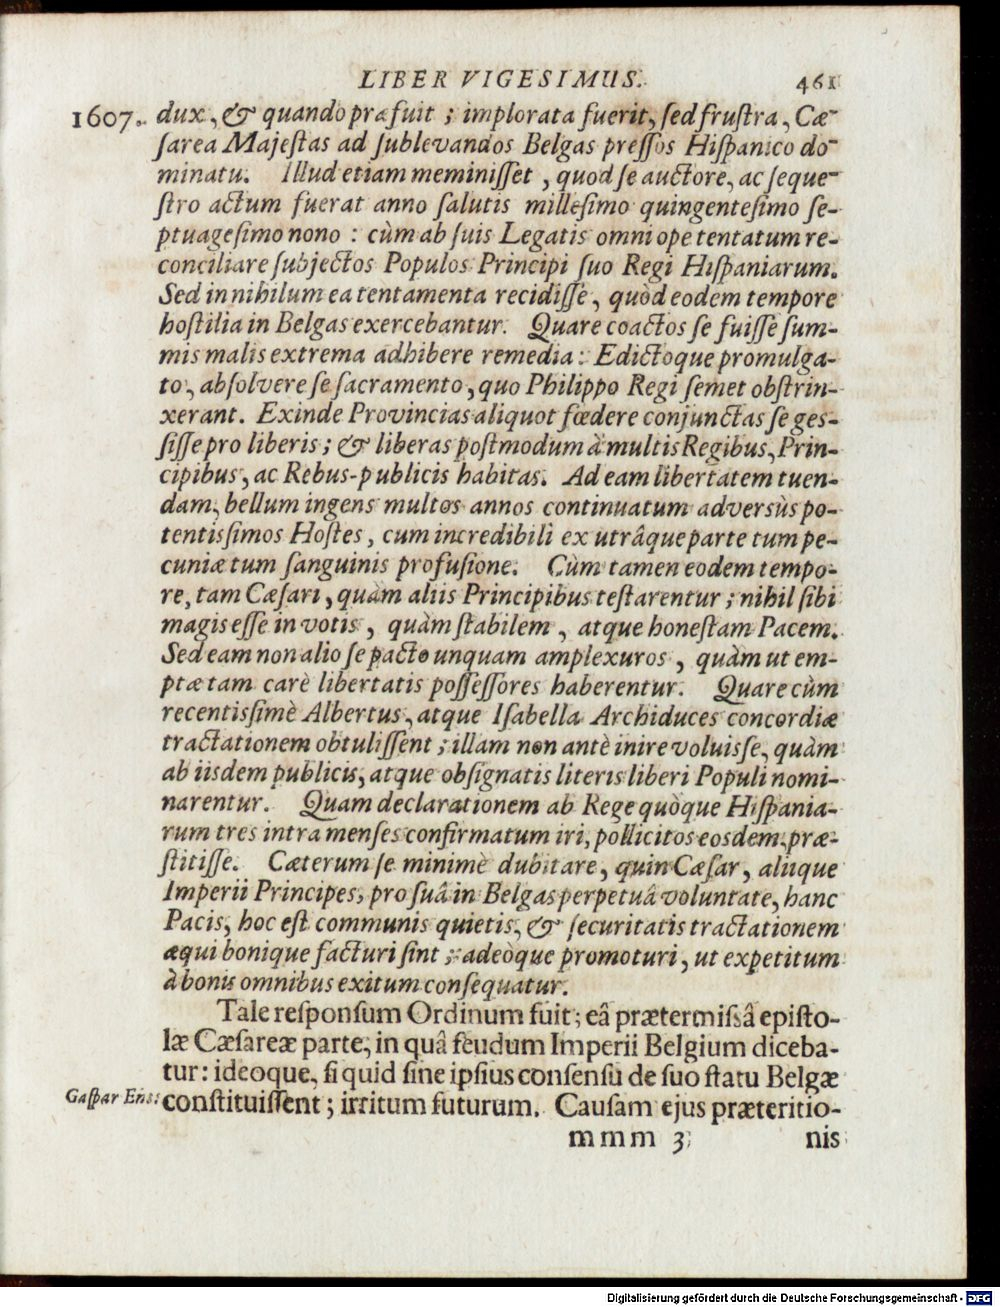 LIBER VIGESIMUS. 461
1607. dux, & quando præfuit ; implorata fuerit, sed frustra, Cæ-
sarea Majestas ad sublevandos Belgas pressos Hispanico do-
minatu. Illud etiam meminisset, quod se auctore, ac seque-
stro actum fuerat anno salutis millesimo quingentesimo se-
ptuagesimo nono : cùm ab suis Legatis omni ope tentatum re-
conciliare subjectos Populos Principi suo Regi Hispaniarum.
Sed in nihilum ea tentamenta recidisse, quòd eodem tempore
hostilia in Belgas exercebantur. Quare coactos se fuisse sum-
mis malis extrema adhibere remedia : Edictoque promulga-
to, absolvere se sacramento, quo Philippo Regi semet obstrin-
xerant. Exinde Provincias aliquot fœdere conjunctas se ges-
sisse pro liberis ; & liberas postmodum à multis Regibus, Prin-
cipibus, ac Rebus-publicis habitas. Ad eam libertatem tuen-
dam, bellum ingens multos annos continuatum adversùs po-
tentissimos Hostes, cum incredibili ex utrâque parte tum pe-
cuniæ tum sanguinis profusione. Cùm tamen eodem tempo-
re, tam Cæsari, quàm aliis Principibus testarentur ; nihil sibi
magis esse in votis, quàm stabilem, atque honestam Pacem.
Sed eam non alio se pacto unquam amplexuros, quàm ut em-
ptæ tam carè libertatis possessores haberentur. Quare cùm
recentissimè Albertus, atque Isabella Archiduces concordiæ
tractationem obtulissent ; illam non antè inire voluisse, quàm
ab iisdem publicis, atque obsignatis literis liberi Populi nomi-
narentur. Quam declarationem ab Rege quòque Hispania-
rum tres intra menses confirmatum iri, pollicitos eosdem præ-
stitisse. Cæterum se minimè dubitare, quin Cæsar, aliique
Imperii Principes, pro suâ in Belgas perpetuâ voluntate, hanc
Pacis, hoc est communis quietis, & securitatis tractationem
æqui bonique facturi sint ; adeòque promoturi, ut expetitum
à bonis omnibus exitum consequatur.
Tale responsum Ordinum fuit ; eâ prætermissâ episto-
læ Cæsareæ parte, in quâ feudum Imperii Belgium diceba-
tur : ideoque, si quid sine ipsius consensu de suo statu Belgæ
Gaspar Ens: constituissent ; irritum futurum. Causam ejus præteritio-
mmm 3 nis
Digitalisierung gefördert durch die Deutsche Forschungsgemeinschaft - DFG